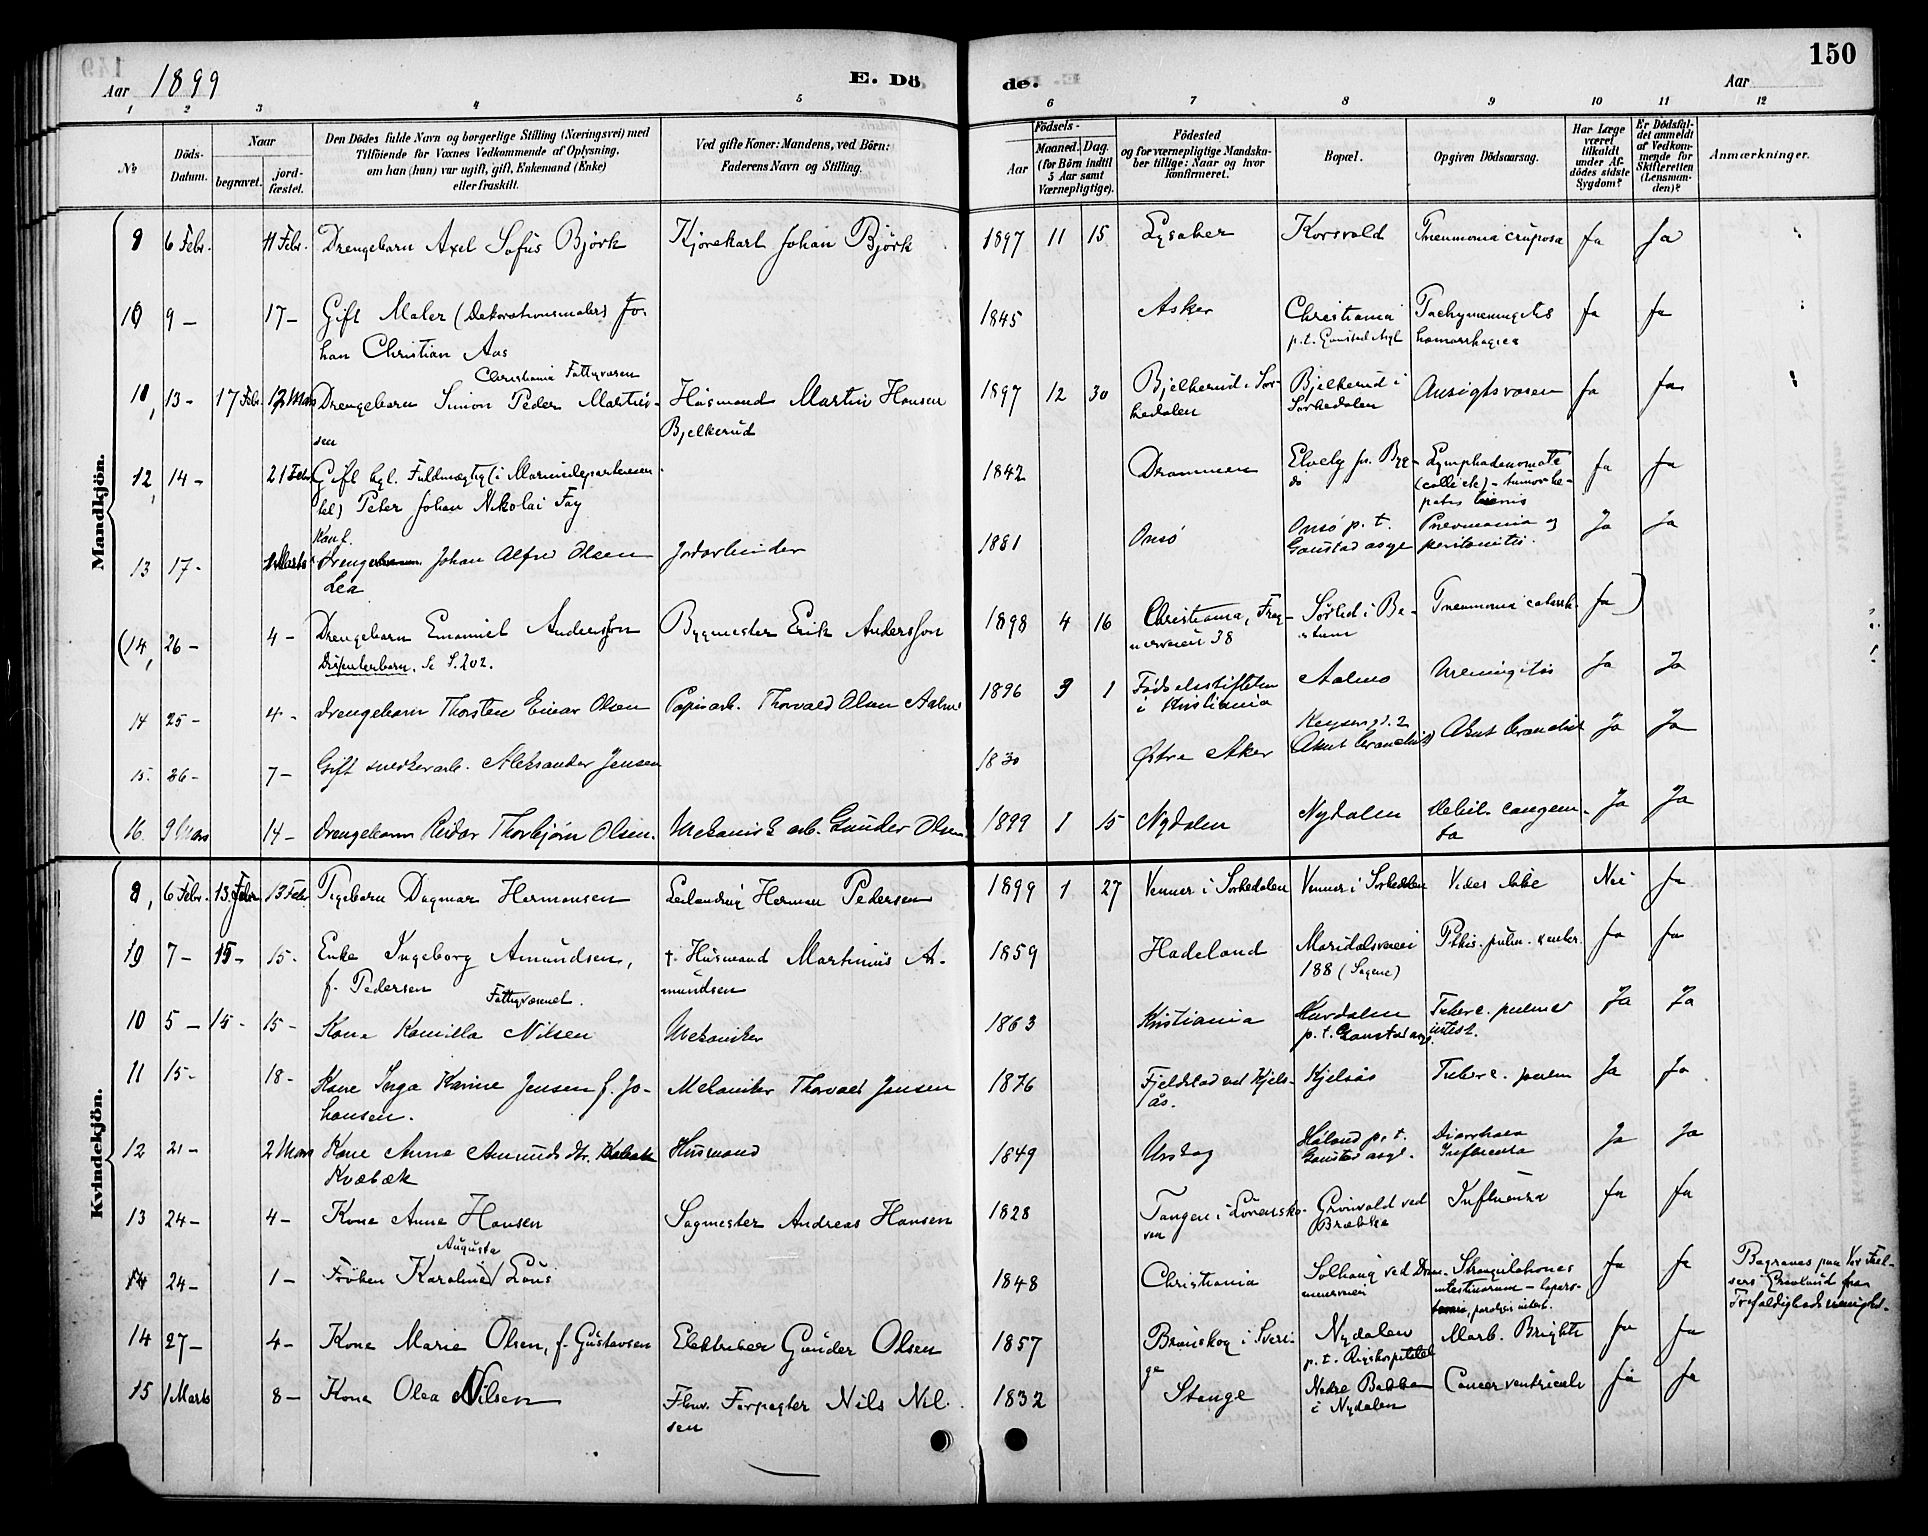 149
150
Aar 1899
E. Dö
de.
Aar
1 2 3 4 5 6 7 8 9 10 11 12
No
Döds-Datum.
Naar
begravet.
jord-fæstet.
Den Dödes fulde Navn og borgerlige Stilling (Næringsvei) med
Tilföiende for Voxnes Vedkommende af Oplysning,
om han (hun) var ugift, gift, Enkemand (Enke)
eller fraskilt.
Ved gifte Koner: Mandens, ved Börn:
Faderens Navn og Stilling.
Födsels-
Aar
Maaned. Dag.
(for Börn indtil
5 Aar samt
Værnepligtige).
Födested
og for værnepligtige Mandska-
ber tillige: Naar og hvor
konfirmeret.
Bopæl.
Opgiven Dödsaarsag.
Har Læge
været
tilkaldt
under Af-
dödes sidste
Sygdom?
Er Dödsfal-
det anmeldt
af Vedkom-
mende for
Skifteretten
(Lensman-
den)?
Anmærkninger.
Mandkjön.
9 6 Febr. 11 Febr. Drengebarn Axel Sofus Björk Kjörekarl Johan Björk 1897 11 15 Lysaker Korsvold Pneumonia cruposa Ja Ja
10 9 — 17 — Gift Maler (Dekorationsmaler) Jo-
han Christian Aas 1845 Asker Christiania
p.t. Gaustad Asyl Pachymeningitis
hæmorrhagica Ja Ja
Christiania Fattigvæsen
11, 13 - 17 Febr. 12 Mars Drengebarn Simon Peder Martin-
sen Husmand Martin Hansen
Bjelkerud 1897 12 30 Bjelkerud i Sör-
kedalen Bjelkerud i
Sörkedalen Ansigtsrosen Ja Ja
12, 14 - 21 Febr. Gift kgl. Fuldmægtig (i Marinedepartemen-
tet) Peter Johan Nikolai Fay 1842 Drammen Elvely pr. Byg-
dö Lymphadenomata
(colli etc) - tumor he-
patis Ja Ja
13 17 - Marts Johan Alfred Olsen
Lea Jordarbeider 1881 Onsö Onsö p.t.
Gaustad asyl Pnevmonia og
peritonitis. Ja Ja
(14, 26 - 4 - Drengebarn Emanuel Andersson
Dissenterbarn. Se S. 202. Bygmester Erik Andersson 1898 4 16 Christiania, Frog-
nerveien 38 Sörlid i Be-
stum Pneumonia catarrh. Ja )
14 25 - 4 - Drengebarn Thorsten Einar Olsen Papirarb. Thorvald Olsen Aalmo 1896 3 1 Fødselsstiftelsen
i Kristiania Aalmo Meningitis Ja Ja
15. 26 - 7 - Gift snedkerarb. Aleksander Jensen 1830 Østre Aker Keysersgt. 2
(Akut bronchit) Akut bronchit Ja Ja
16. 9 Mars 14 - Drengebarn Reidar Thorbjørn Olsen. Mekanisk arb. Gunder Olsen 1899 1 15 Nydalen Nydalen Debil. congeni-
ta Ja Ja
Kvindekjön.
8, 6 Febr. 13 Febr. 13 Febr. Pigebarn Dagmar Hermansen Leilænding Herman Pedersen 1899 1 27 Venner i Sörkedalen Venner i Sörkedalen Vides ikke Nei Ja
19 7 - 15 - 15 - Enke Ingeborg Amundsen,
f. Pedersen † Husmand Martinius A-
mundsen 1859 Hadeland Maridalsveien
188 (Sagene) Phthis. pulm. Ja Ja
Fattigvæsenet.
10 5 - 15 - 15 - Kone Kamilla Nilsen Mekaniker 1863 Kristiania Hurdalen
p.t. Gaustad asyl. Tuberc. pulm.
intest. Ja Ja
11 15 - 18 - Kone Inga Karine Jensen f. Jo-
hansen. Mekaniker Thorvald Jensen 1876 Fjeldstad ved Kjels-
ås. Kjelsås Tuberc. pulm Ja Ja
12 21 - 2 Mars Kone Anne Amundsdtr.
Kvæbæk Husmand 1849 Urskog Høland p.t.
Gaustad asyl. Diarrhoea
Influenza Ja Ja
13 24 - 4 - Kone Anne Hansen Sagmester Andreas Hansen 1828 Tangen i Lörensko-
ven Grönvold ved
Brække Influenza Ja Ja
14 24 - 1 - Fröken Karoline Augusta Lous 1848 Christiania Solhaug ved Dram-
mensveien Strangulationes
intestinorum - laparo-
tomia, paralysis intest. Ja Ja Begraves paa Vor Frel-
sers Gravlund fra
Trefoldigheds menighd.
14 27 - 4 - Kone Marie Olsen, f. Gustavsen Elektriker Gunder Olsen 1857 Brunskog i Sveri-
ge Nydalen
p.t. Rigshospitalet Morb. Brightii Ja Ja
15 1 Marts 8 - Kone Olea Nilsen Forpagter Nils Nil-
sen 1832 Stange Nedre Bakken
i Nydalen Cancer ventriculi Ja Ja